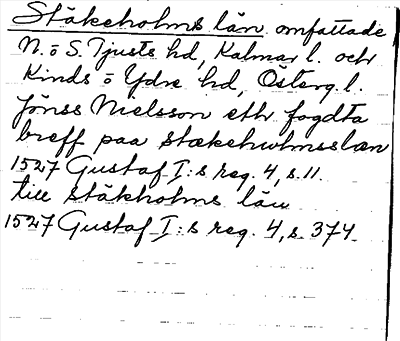 Stäkeholms län omfattade
N. o S. Tjusts hd, Kalmar l. och
Kinds o Ydre hd, Österg. l.
Jönss Nielsson ett fogdta
breff paa stækehwlmsslæn
1527 Gustaf I:s reg. 4, s. 11.
till stäkholms län
1527 Gustaf I:s reg. 4, s. 374.